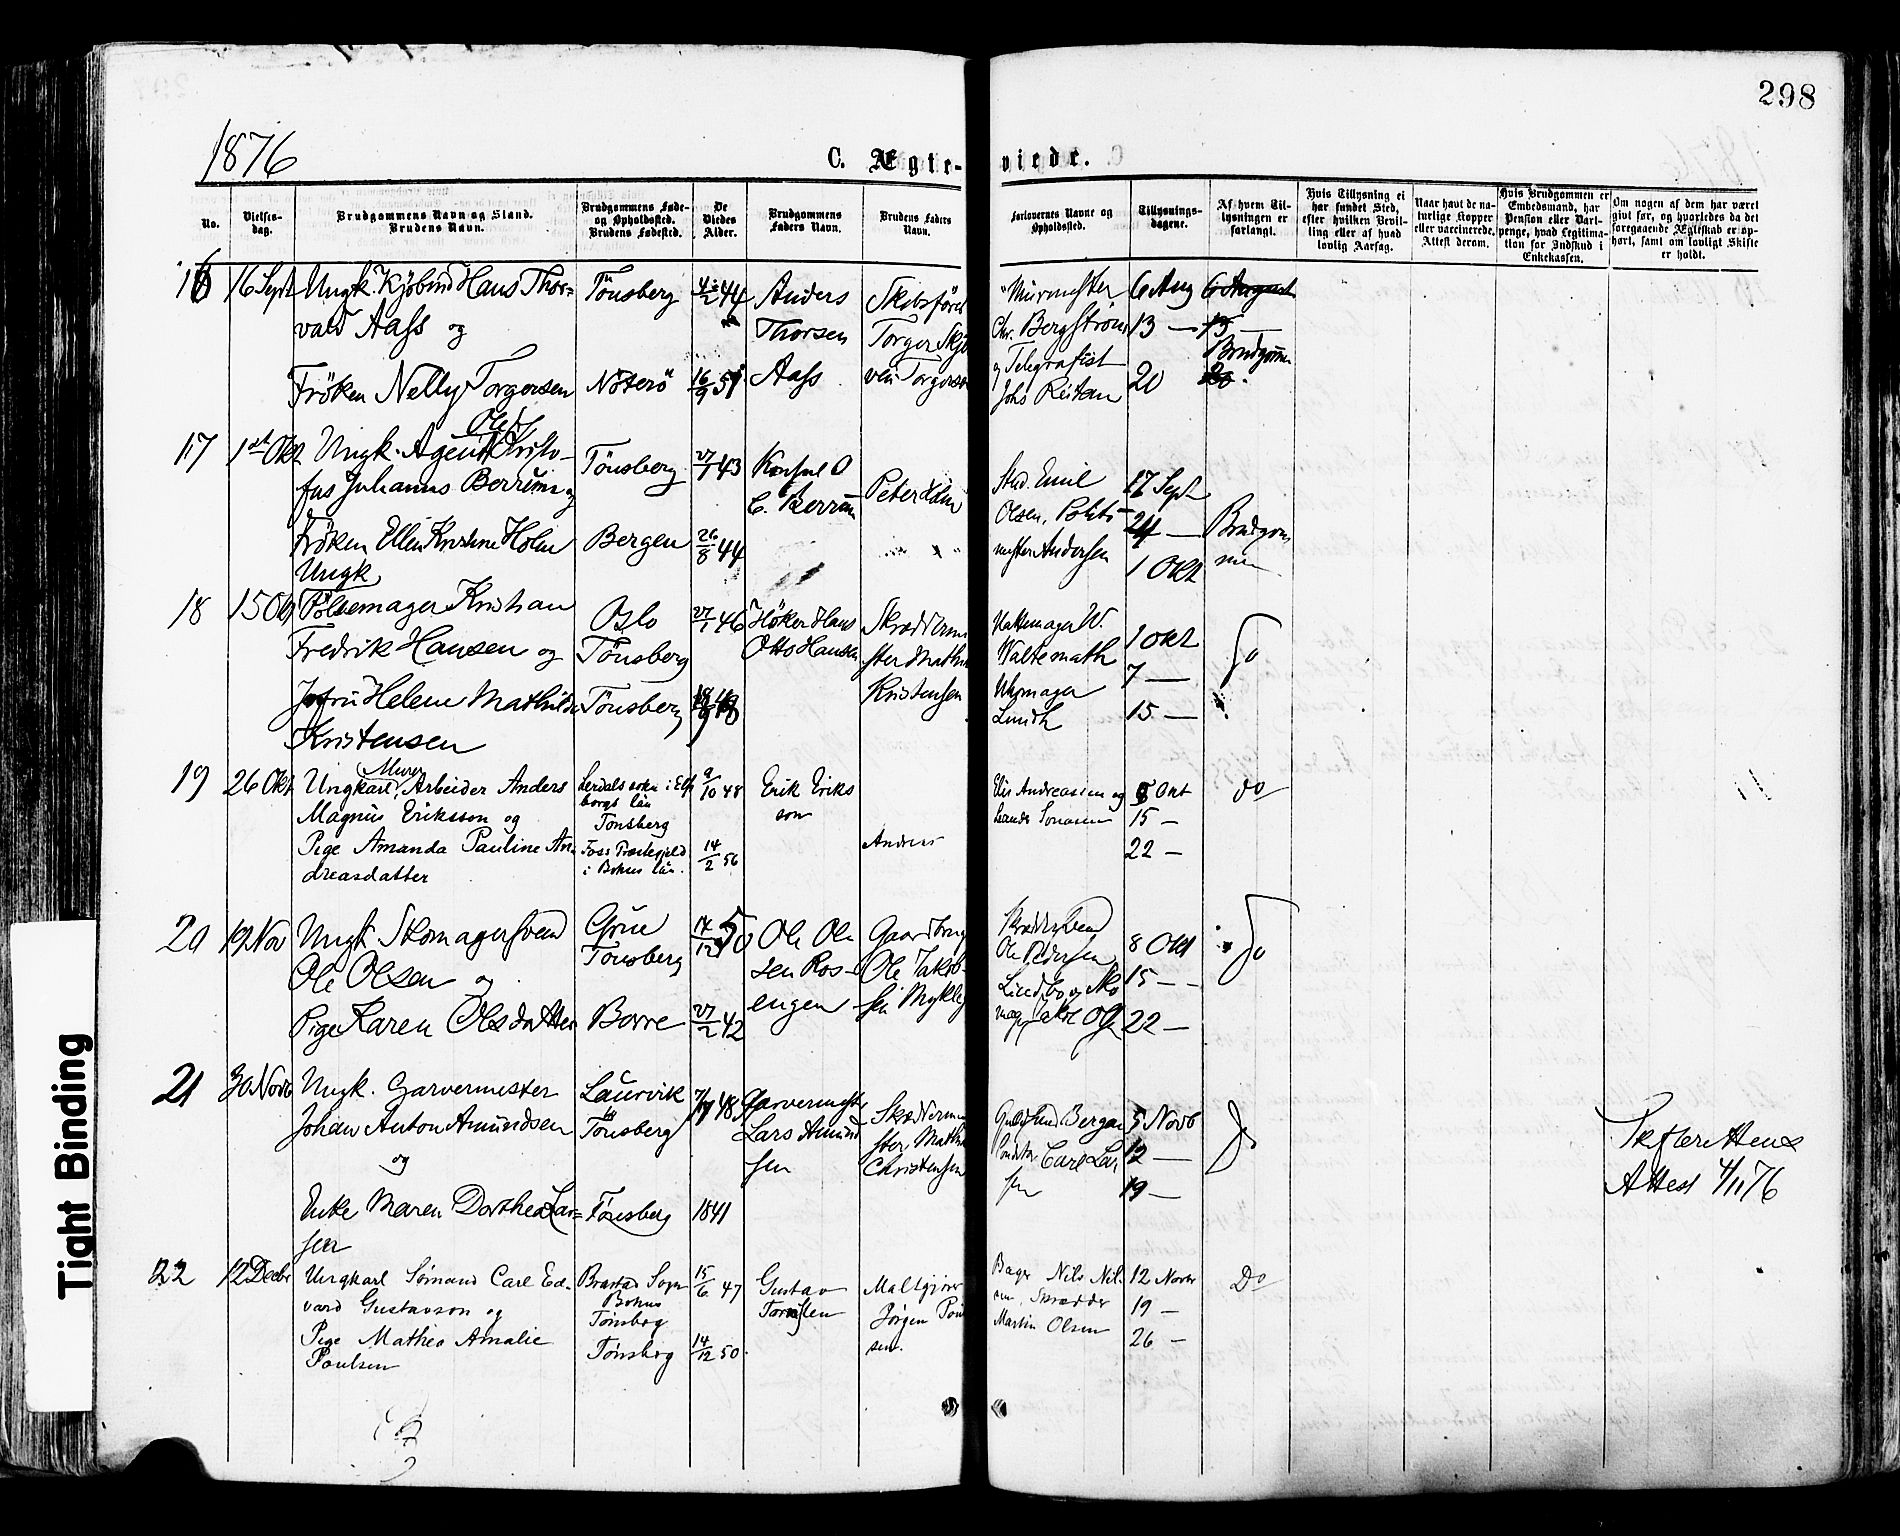 298
1876
C. Ægte-
viede.
No.
Vielses-
dag.
Brudgommens Navn og Stand.
Brudens Navn.
Brudgommens Føde-
og Opholdssted.
Brudens Fødested.
De
Viedes
Alder.
Brudgommens
Faders Navn.
Brudens Faders
Navn.
Forlovernes Navne og
Opholdssted.
Tillysnings-
dagene.
Af hvem Til-
lysningen er
forlangt.
Hvis Tillysning ei
har fundet Sted,
efter hvilken Bevil-
ling eller af hvad
lovlig Aarsag.
Naar havt de na-
turlige Kopper
eller vaccinerede.
Attest derom.
Hvis Brudgommen er
Embedsmand, har
Pension eller Vart-
penge, hvad Legitima-
tion for Indskud i
Enkekassen.
Om nogen af dem har været
gift før, og hvorledes da det
foregaaende Ægteskab er op-
hørt, samt om lovligt Skifte
er holdt.
16
16 Sept
Ungk. Kjøbmd Hans Thor-
vald Aass og
Fröken Nelly Torgersen
Tönsberg
Nöterö
44
16/9 51
Anders
Thorsen
Aass
Skibsförer
Torger
Torgersen
Murmester
Chr. Bergström
og Telegrafist
Johs Reitan
6 Aug
13 —
20
6 August
13 —
Brudgommen
20
17
1st Okt
Olsen
Ungk. Agent Kristo-
fus Johannes Berrum og
Fröken Ellen Kristine Holm
Tönsberg
Bergen
27/1 43
26/8 44
Konsul O
C. Berrum
Peter Holm
Stud. Emil
Olsen, Politi-
mester Andersen
17 Sept
24 —
1 Okt
Brudgom
men
18
15 Okt
Ungk
Pölsemager Kristian
Fredrik Hansen og
Jfru Helene Mathilde
Kristensen
Oslo
Tönsberg
Tönsberg
27/1 46
Höker Hans
Otto Hansen
Skrædderme
ster Mathi
Kristensen
Hattemager W.
Waltemath
Uhrmager
Lindh
1 Okt
7 —
15 —
do
19
26 Okt
Murer
Ungkarl, Arbeider Anders
Magnus Eriksson og
Pige Amanda Pauline An-
dreasdatter
Lerdals sokn i Elfs
borgs län
Tønsberg
Foss Præstegjeld
i Bohus län.
9/10 48
14/2 56
Erik Eriks
son
Andreas
Elis Andreasen og
8 Okt
15 —
22 —
do
20
19 Nov
Ungk Skomagersvend
Ole Olsen og
Pige Karen Olsdatter
Grue
Tönsberg
Borre
14/12 50
27/2 42
Ole Ol
sen Ros-
engen
Gaardbrug
Ole Jakob-
sen Mykle
Ole Pedersen
Lindbo og Sko
8 Okt
15 —
22 —
do
21
30 Novb
Ungk. Garvermester
Johan Anton Amundsen
og
Enke Maren Dorthea Lar-
sen
Laurvik
Tönsberg
Tönsberg
48
1841
Garvermester
Lars Amund
sen
Skrædderme
ster Mathi
Christensen
Bergan
Carl Lar
sen
5 Novb
12 —
19 —
do
Skifterettens
Attest 4/11 76
22
12 Decbr
Ungkarl Sömand Carl Ed-
vard Gustavson og
Pige Mathea Amalie
Poulsen
Brastad Sogn
Bohus
Tönsberg
Tönsberg
15/6 47
14/12 50.
Gustav
Maltgjører
Jørgen Poul
sen.
Bager Nils Nil-
sen, Skrædder
Martin Olsen
12 Novbr
19 —
26 —
Do
Tight Binding